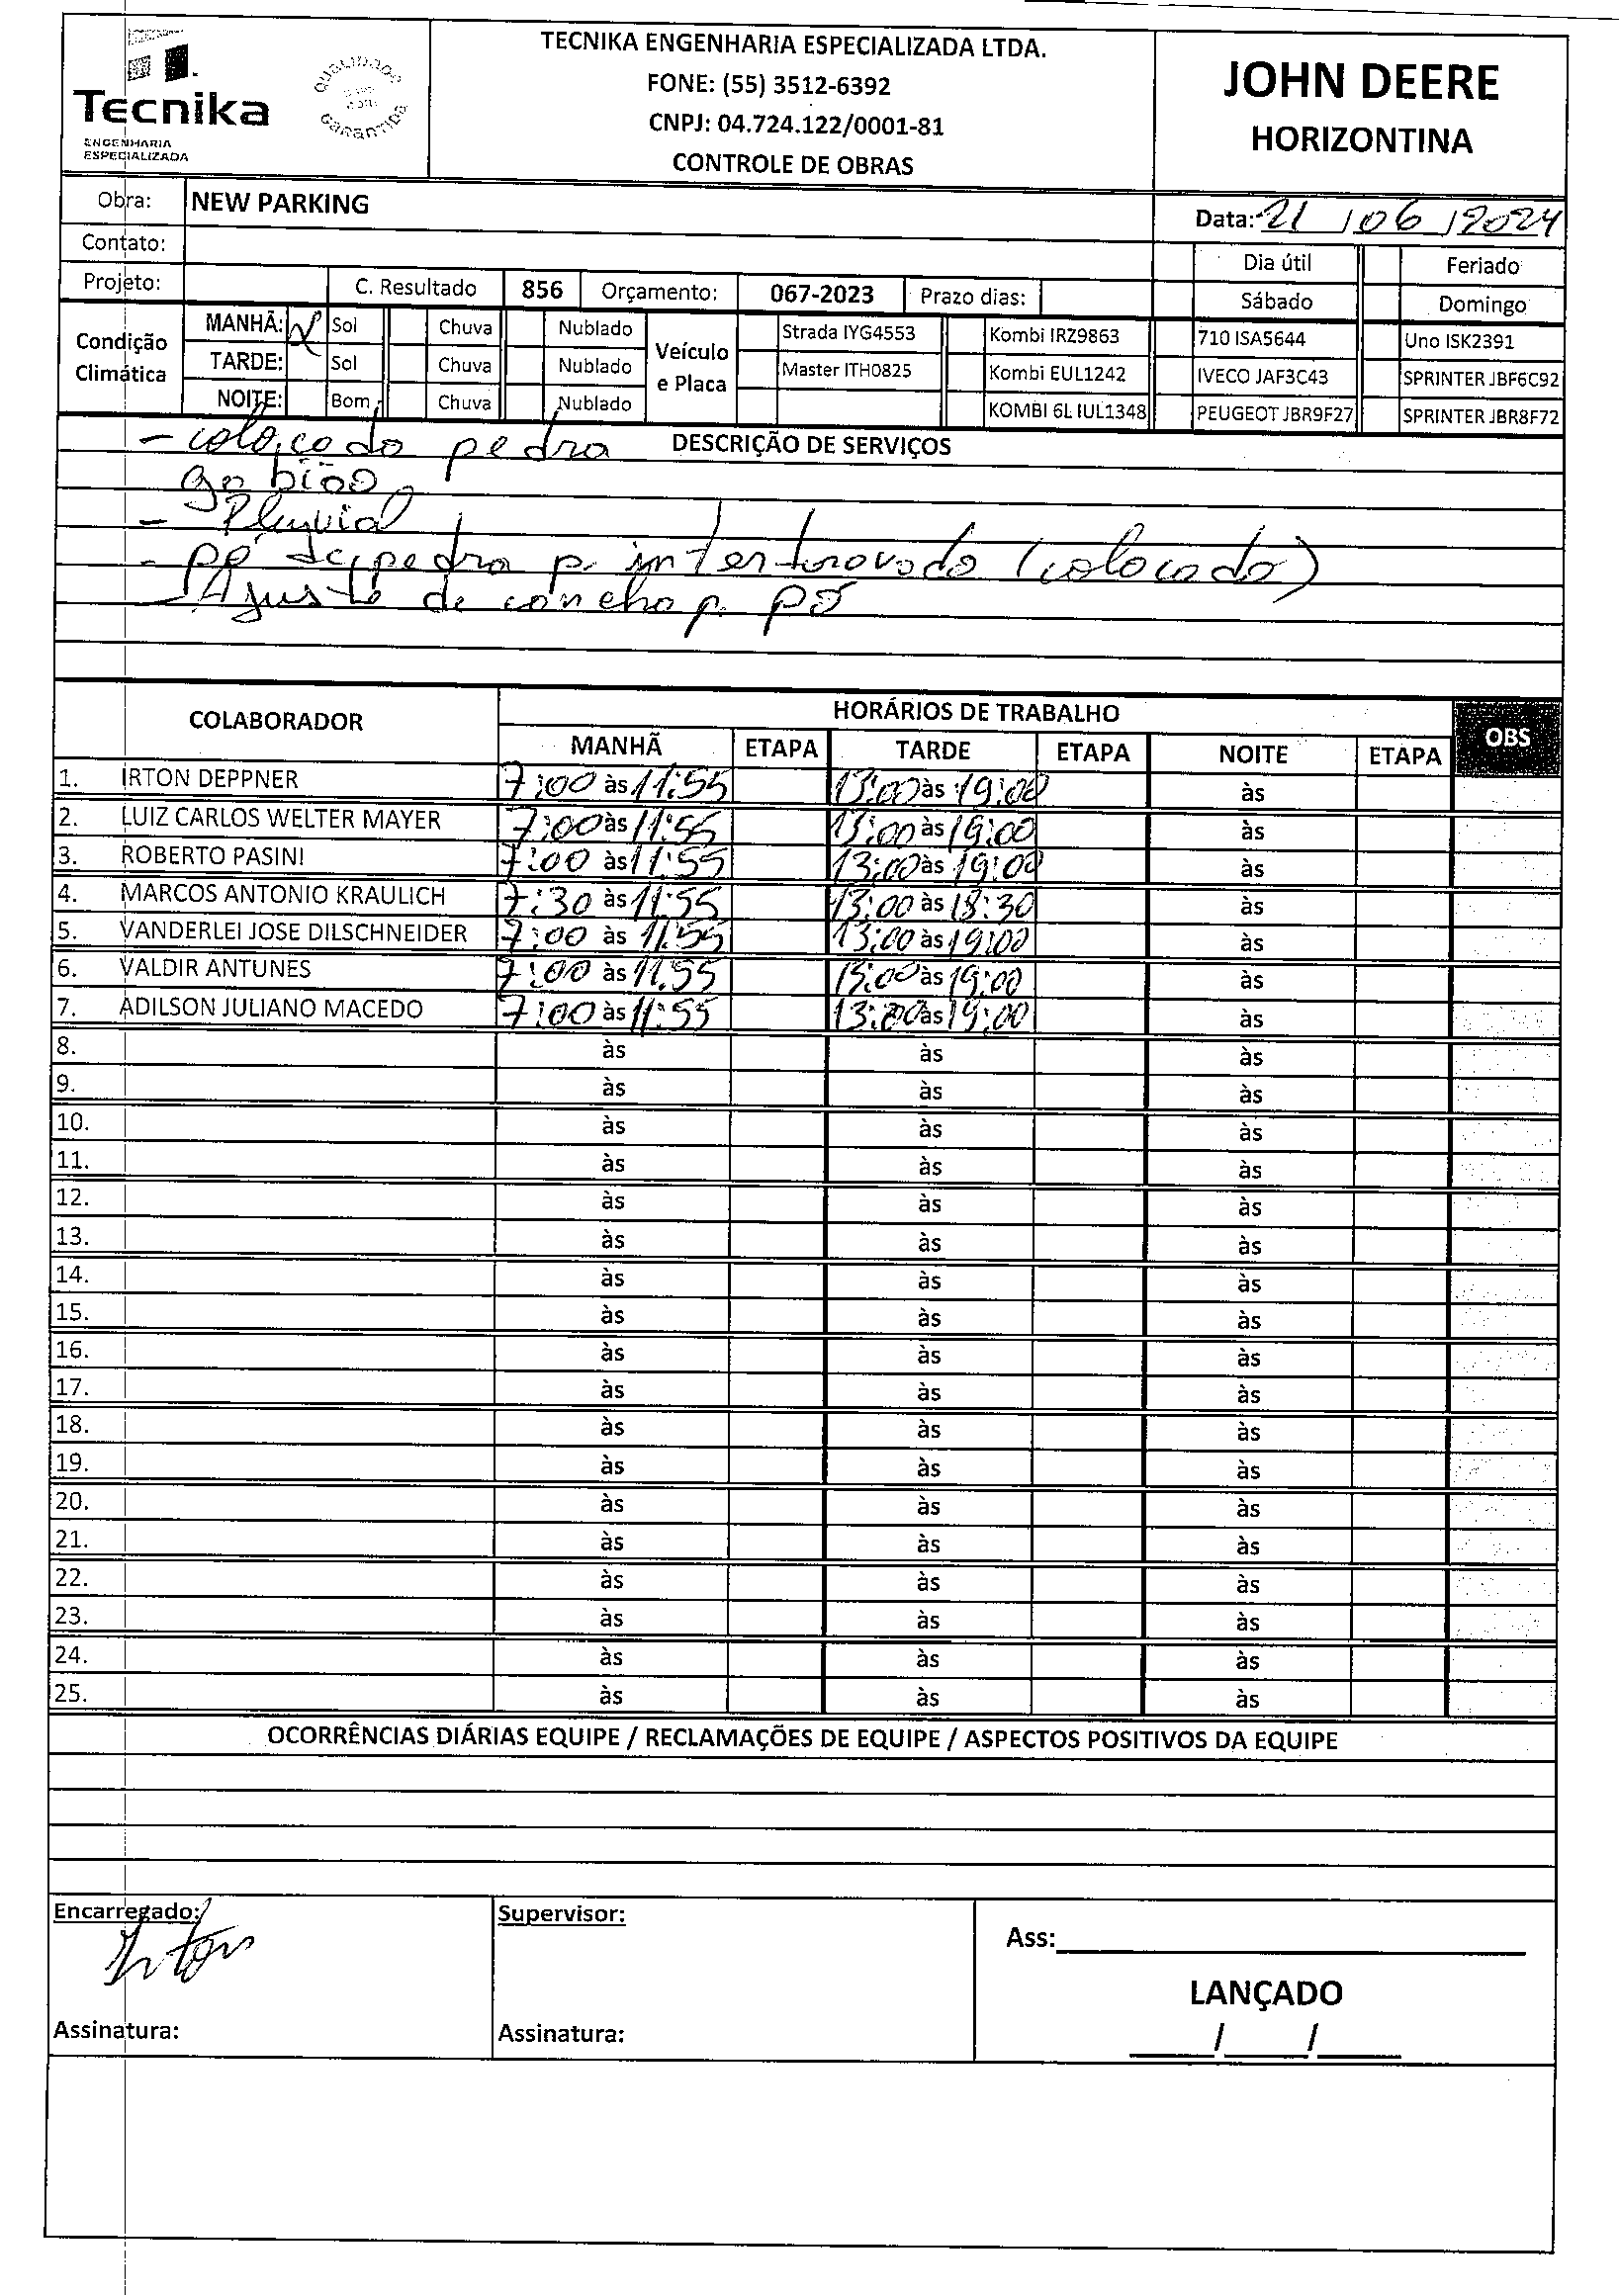 TECNIKA ENGENHARIA ESPECIALIZADA LTDA.
FONE: (55) 3512-6392
CNPJ: 04.724.122/0001-81
CONTROLE DE OBRAS
Tecnika
ENGENHARIA
ESPECIALIZADA
QUALIDADE
GARANTIDA
JOHN DEERE
HORIZONTINA
Obra: NEW PARKING
Data: 21/06/2024
Contato:
Dia útil Feriado
Projeto: C. Resultado 856 Orçamento: 067-2023 Prazo dias:
Sábado Domingo
Condição Climática
MANHÃ: X Sol Chuva Nublado
TARDE: Sol Chuva Nublado
NOITE: Bom Chuva Nublado
Veículo e Placa
Strada IYG4553 Kombi IRZ9863 710 ISA5644 Uno ISK2391
Master ITH0825 Kombi EUL1242 IVECO JAF3C43 SPRINTER JBF6C92
KOMBI 6L IUL1348 PEUGEOT JBR9F27 SPRINTER JBR8F72
DESCRIÇÃO DE SERVIÇOS
- colocado pedra
gabião
- Pluvial
- pó de pedra p. intertravado (colocado)
- Ajuste de concha p. pó
COLABORADOR HORÁRIOS DE TRABALHO OBS
MANHÃ ETAPA TARDE ETAPA NOITE ETAPA
1. IRTON DEPPNER 7:00 às 11:55 13:00 às 19:00 às
2. LUIZ CARLOS WELTER MAYER 7:00 às 11:55 13:00 às 19:00 às
3. ROBERTO PASINI 7:00 às 11:55 13:00 às 19:00 às
4. MARCOS ANTONIO KRAULICH 7:30 às 11:55 13:00 às 18:30 às
5. VANDERLEI JOSE DILSCHNEIDER 7:00 às 11:55 13:00 às 19:00 às
6. VALDIR ANTUNES 7:00 às 11:55 13:00 às 19:00 às
7. ADILSON JULIANO MACEDO 7:00 às 11:55 13:00 às 19:00 às
8. às às às
9. às às às
10. às às às
11. às às às
12. às às às
13. às às às
14. às às às
15. às às às
16. às às às
17. às às às
18. às às às
19. às às às
20. às às às
21. às às às
22. às às às
23. às às às
24. às às às
25. às às às
OCORRÊNCIAS DIÁRIAS EQUIPE / RECLAMAÇÕES DE EQUIPE / ASPECTOS POSITIVOS DA EQUIPE
Encarregado: Irton
Supervisor:
Ass:
LANÇADO
Assinatura:
Assinatura:
__/__/__